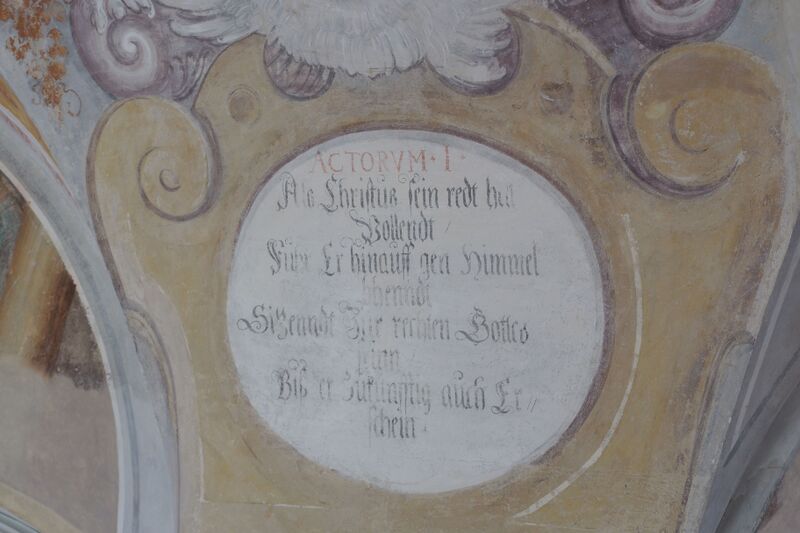 ACTORVM · I ·
Als Christus sein redt hett
Vollendt /
Fuhr Er hinauff gen Himmel
bhenndt
Sitzenndt Zur rechten Gottes
sein /
Biß er Zukunfftig auch Er //
schein .